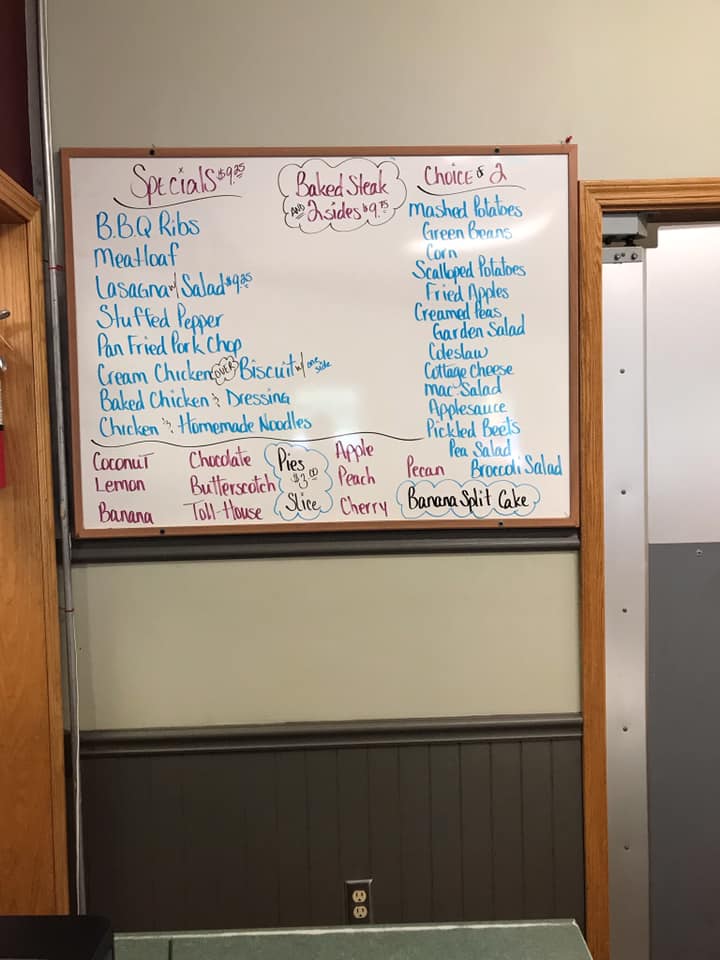 Specials $9.25
B.B.Q Ribs
Meatloaf
Lasagna w/ Salad $9.25
Stuffed Pepper
Pan Fried Pork Chop
Cream Chicken over Biscuit w/ one side
Baked Chicken & Dressing
Chicken & Homemade Noodles
Baked Steak
and 2 sides $9.75
Choice of 2
Mashed Potatoes
Green Beans
Corn
Scalloped Potatoes
Fried Apples
Creamed Peas
Garden Salad
Coleslaw
Cottage Cheese
Mac Salad
Applesauce
Pickled Beets
Pea Salad
Broccoli Salad
Pies
$3.00
Slice
Coconut
Lemon
Banana
Chocolate
Butterscotch
Toll-House
Apple
Peach
Cherry
Pecan
Banana Split Cake